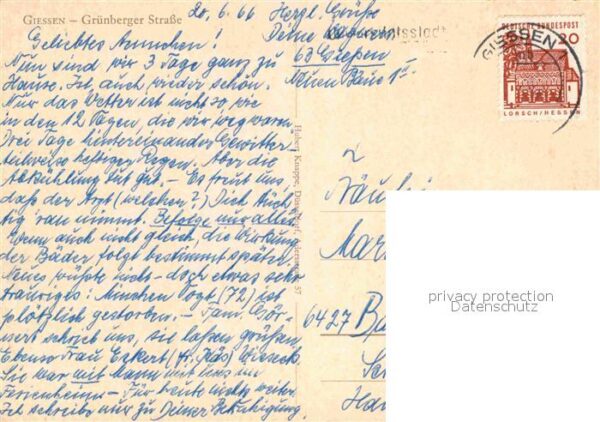 GIESSEN – Grünberger Straße
20.6.66
Herzl. Grüße
Deine
63 Gießen
Neuen Bäue 1
Geliebtes Annchen!
Nun sind wir 3 Tage ganz zu
Hause. Ist auch wieder schön.
Nur das Wetter ist nicht so wie
in den 12 Tagen, die wir weg waren.
Drei Tage hintereinander Gewitter
teilweise heftiger Regen. Aber die
Abkühlung tut gut. – Es freut uns,
daß der Arzt (welcher?) Dich tüch
tig ran nimmt. Befolge nur alles
Wenn auch nicht gleich, die Wirkung
der Bäder folgt bestimmt später.
Neues wüßte nicht – doch etwas sehr
trauriges: Minchen Vogt (72) ist
plötzlich gestorben. – Fam.
schrieb uns, sie lassen grüßen,
Ebenso Frau Eckert Wieseck
Sie war mit Mann mit uns im
Ferienheim. – Für heute nichts weiter
Ich schreibe nur zu Deiner Beruhigung.
Hubert Knappe, Düsseldorf, 37
GIESSEN
DEUTSCHE BUNDESPOST
20
LORSCH/HESSEN
6427 Ba
privacy protection
Datenschutz